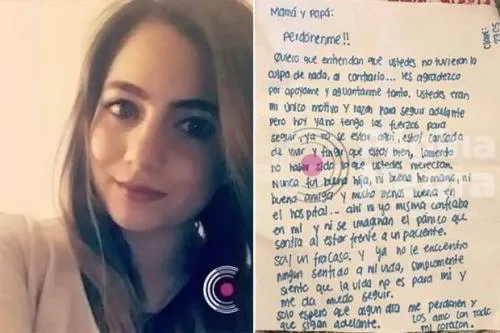 Mamá y Papá:
Perdónenme!!
Quiero que entiendan que ustedes no tuvieron la
culpa de nada, al contrario... les agradezco
por apoyarme y aguantarme tanto. Ustedes eran
mi único motivo y razón para seguir adelante
pero hoy ya no tengo las fuerzas para
seguir, ya no se estar aqui, estoy cansada
de vivir y fingir que estoy bien, lamento
no haber sido lo que ustedes merecian.
Nunca fui buena hija, ni buena hermana, ni
buena amiga y mucho menos buena en
el hospital... ahi ni yo misma confiaba
en mi y ni se imaginan el pánico que
sentia al estar frente a un paciente.
Soy un fracaso, y ya no le encuentro
ningún sentido a mi vida, simplemente
siento que la vida no es para mi y
me da miedo seguir.
Solo espero que algun dia me perdonen y
que sigan adelante. Los amo con todo
mi corazón.